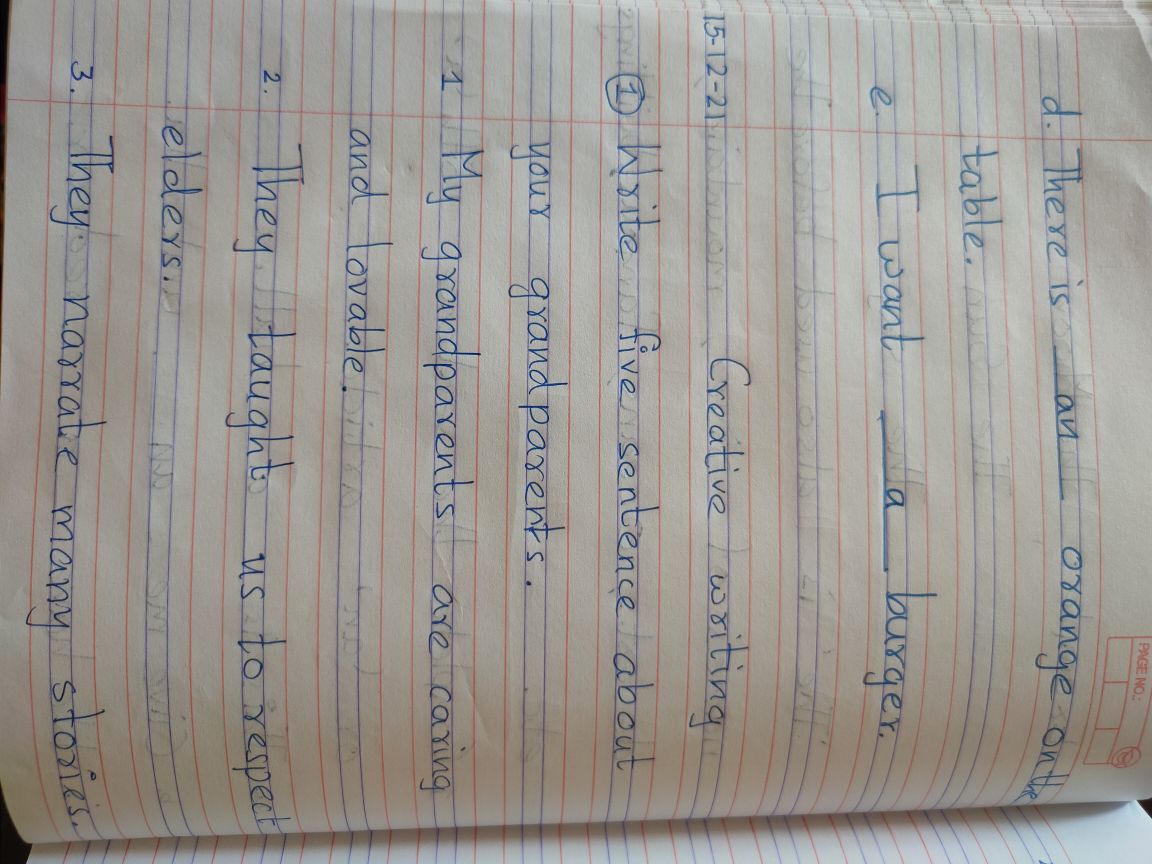 PAGE NO.:
d. There is an orange on the
table.
e. I want a burger.
15-12-21 Creative writing
① Write five sentence about
your grandparents.
1 My grandparents are caring
and lovable.
2. They taught us to respect
elders.
3. They narrate many stories.